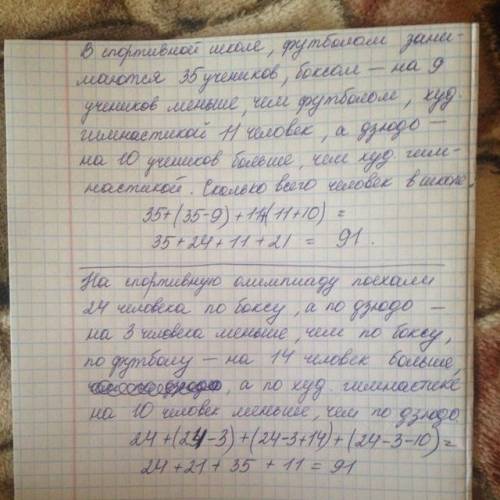 В спортивной школе, футболом зани-
маются 35 учеников, боксом – на 9
учеников меньше, чем футболом, худ.
гимнастикой 11 человек, а дзюдо –
на 10 учеников больше, чем худ. гим-
настикой. Сколько всего человек в школе.
35+(35-9)+11+(11+10) =
35+24+11+21 = 91.
На спортивную олимпиаду поехали
24 человека по боксу, а по дзюдо –
на 3 человека меньше, чем по боксу,
по футболу – на 14 человек больше,
, а по худ. гимнастике
на 10 человек меньше, чем по дзюдо
24+(24-3)+(24-3+14)+(24-3-10)=
24+21+35+11=91